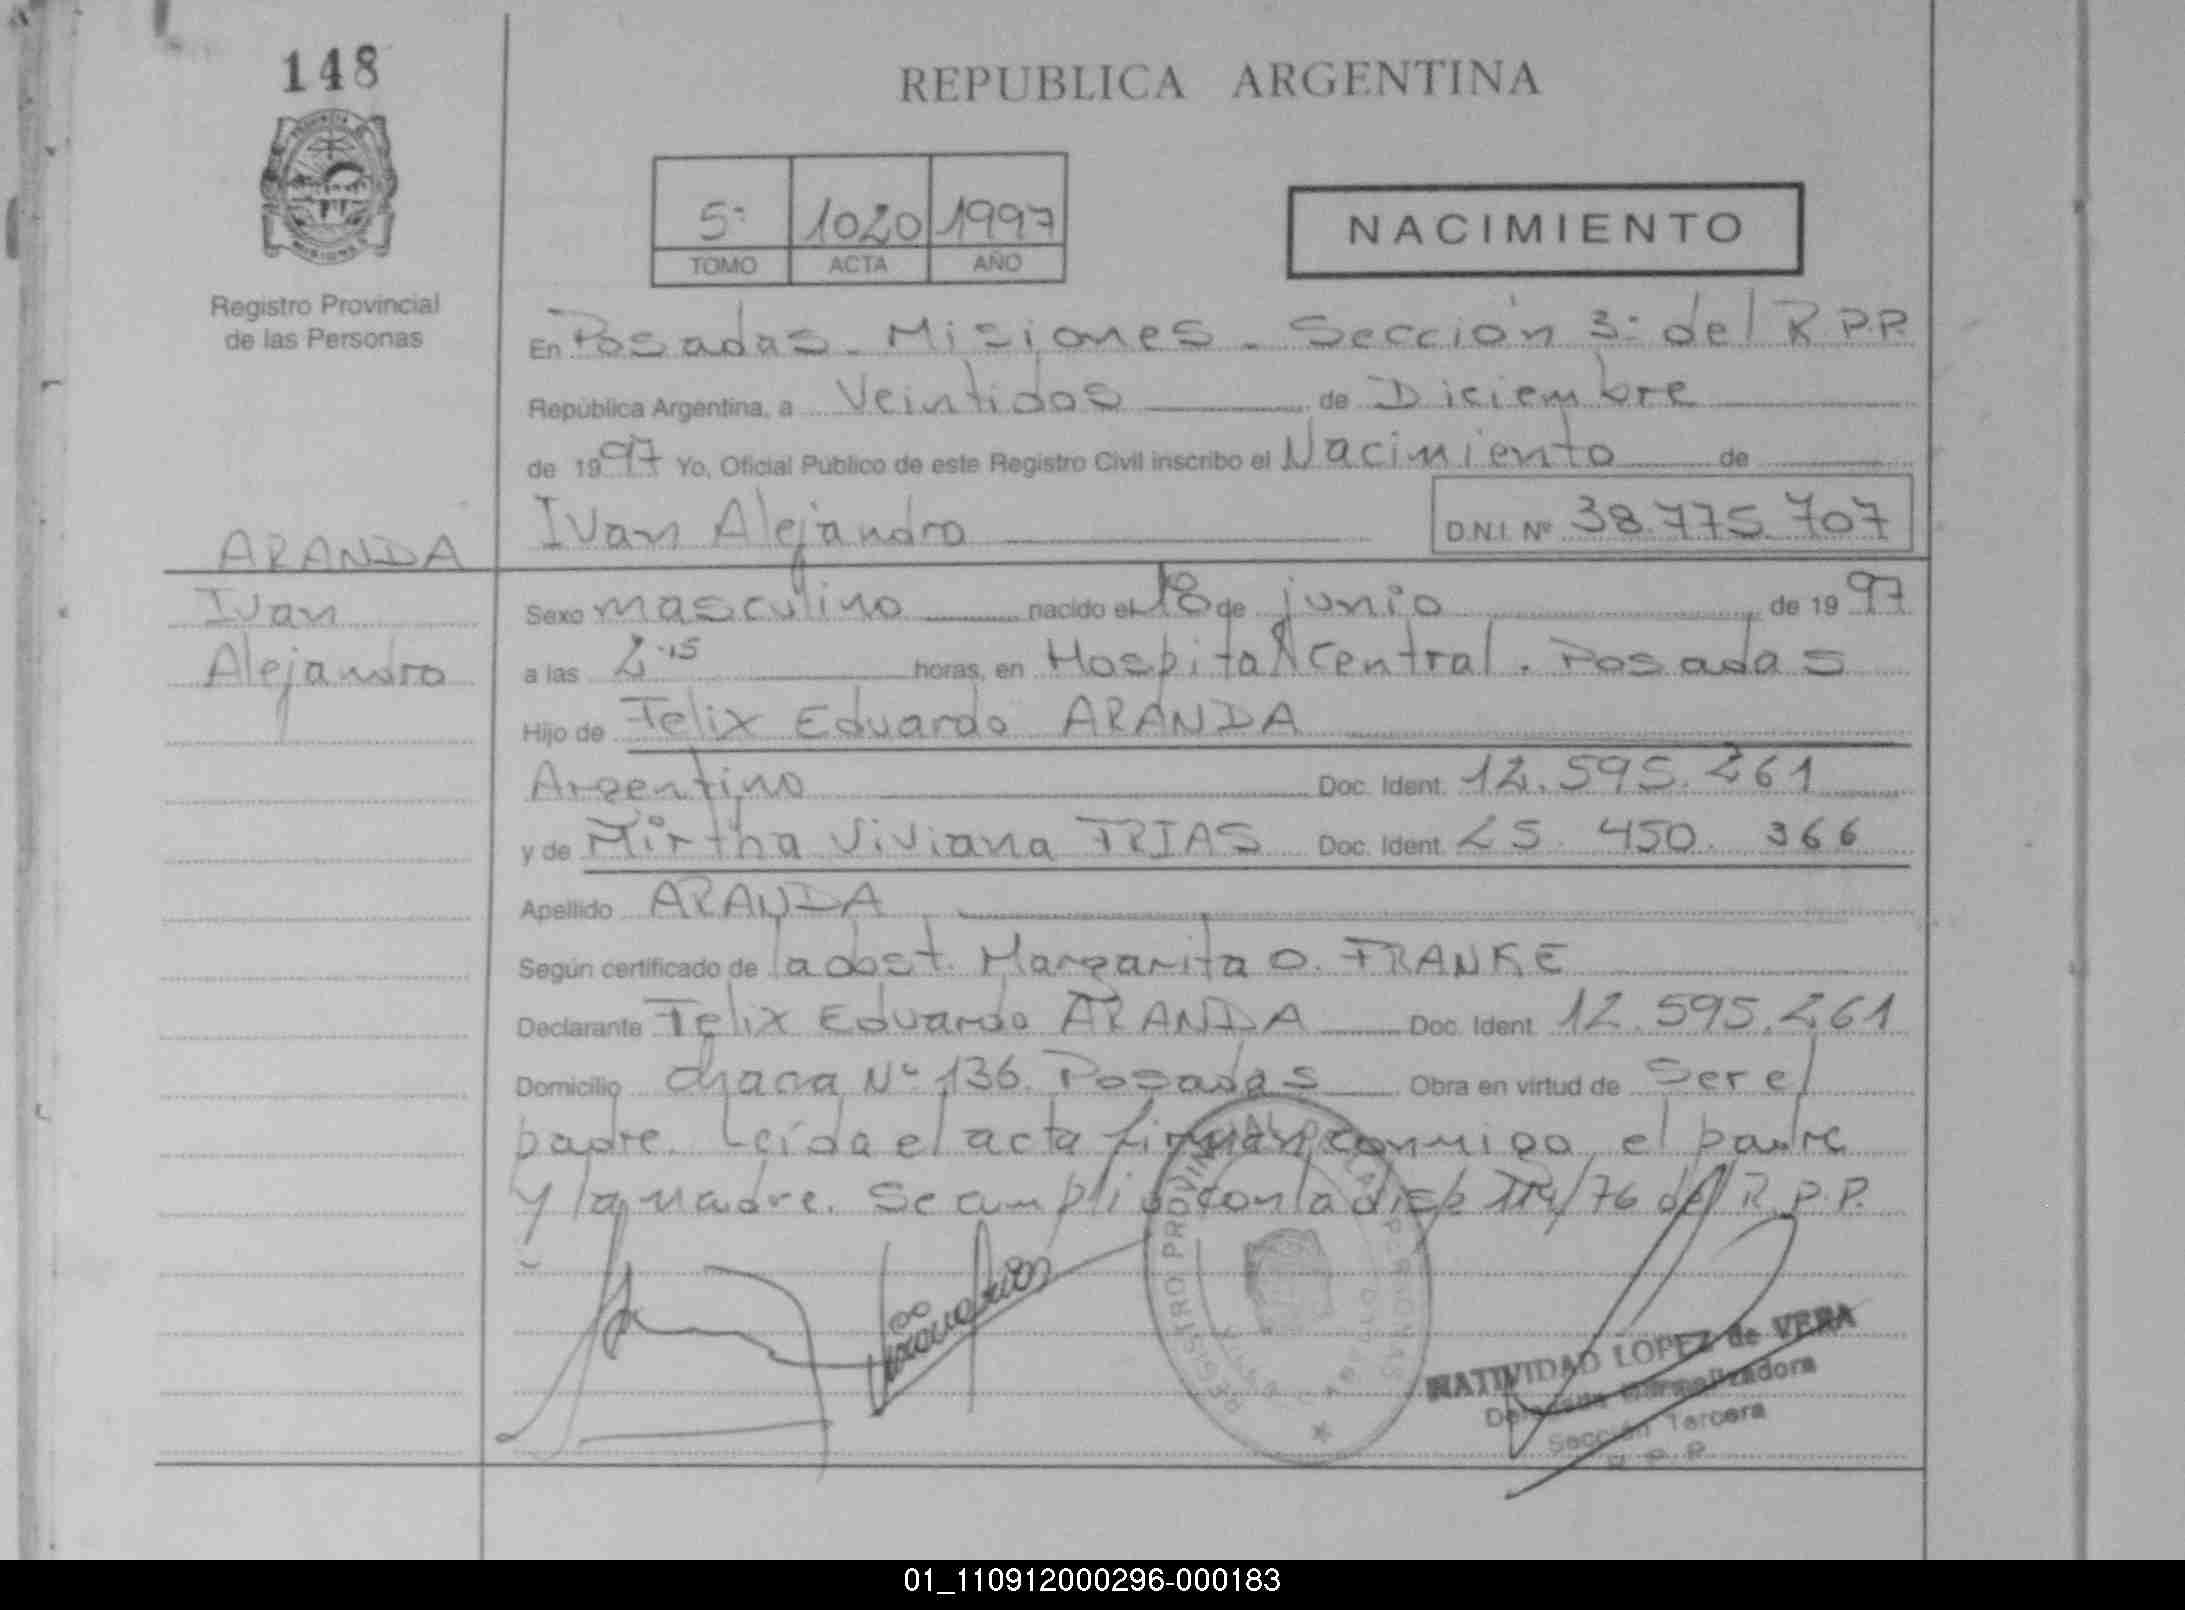 148
REPUBLICA ARGENTINA
5ª 1020 1997
TOMO ACTA AÑO
NACIMIENTO
Registro Provincial
de las Personas
En Posadas - Misiones - Sección 3ª del R.P.P.
República Argentina, a Veintidos de Diciembre
de 1997 Yo, Oficial Público de este Registro Civil inscribo el Nacimiento de
Ivan Alejandro D.N.I. Nº 38.775.707
ARANDA
Ivan
Alejandro
Sexo masculino nacido el 18 de junio de 1997
a las 2.15 horas, en Hospital Central. Posadas
Hijo de Felix Eduardo ARANDA
Argentino Doc. Ident. 12.595.261
y de Mirtha Viviana FRIAS Doc. Ident. 25.450.366
Apellido ARANDA
Según certificado de la obst. Margarita O. FRANKE
Declarante Felix Eduardo ARANDA Doc. Ident. 12.595.261
Domicilio chacra Nº 136. Posadas Obra en virtud de Ser el
padre. Leída el acta firman conmigo el padre
y la madre. Se cumplió con la disp 114/76 del R.P.P.
REGISTRO PROVINCIAL DE LAS PERSONAS
NATIVIDAD LOPEZ de VERA
Delegada Normalizadora
Sección Tercera
R.P.P.
01_110912000296-000183